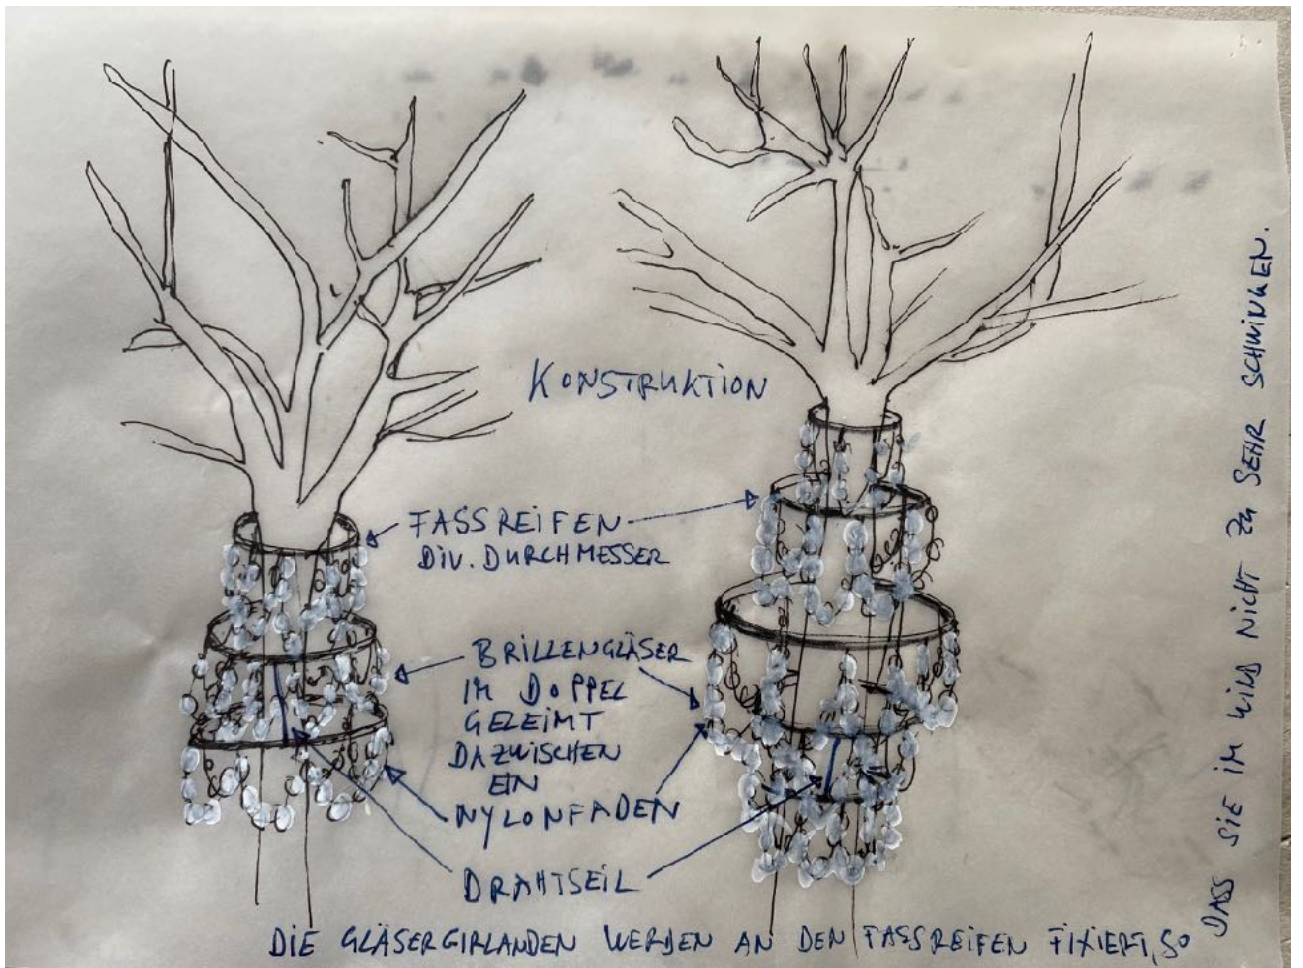 KONSTRUKTION
FASSREIFEN
DIV. DURCHMESSER
BRILLENGLÄSER
IM DOPPEL
GELEIMT
DAZWISCHEN
EIN
NYLONFADEN
DRAHTSEIL
DIE GLÄSERGIRLANDEN WERDEN AN DEN FASSREIFEN FIXIERT, SO
DASS SIE IM WIND NICHT ZU SEHR SCHWINGEN.